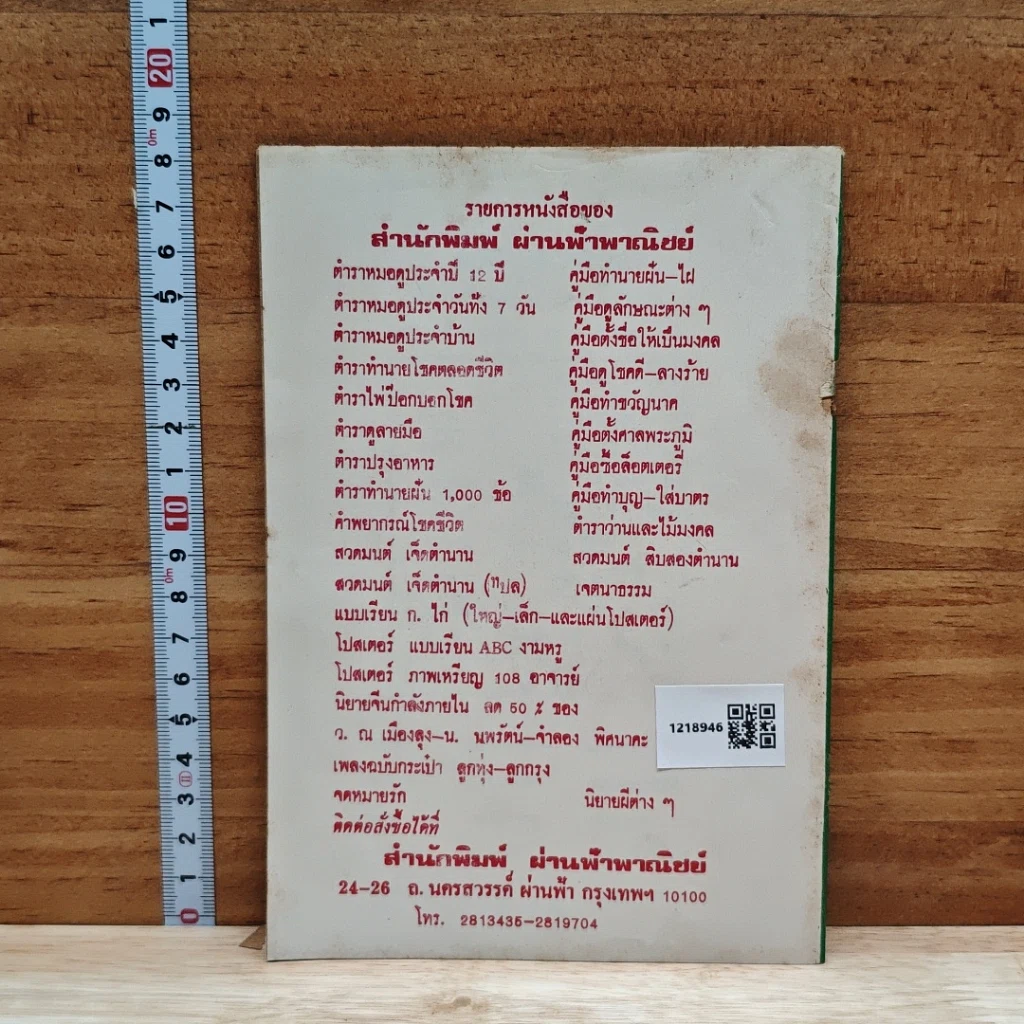 รายการหนังสือของ
สำนักพิมพ์ ผ่านฟ้าพาณิชย์
ตำราหมอดูประจำปี 12 ปี คู่มือทำนายฝัน-ไฝ
ตำราหมอดูประจำวันทั้ง 7 วัน คู่มือดูลักษณะต่าง ๆ
ตำราหมอดูประจำบ้าน คู่มือตั้งชื่อให้เป็นมงคล
ตำราทำนายโชคตลอดชีวิต คู่มือดูโชคดี-ลางร้าย
ตำราไพ่ป๊อกบอกโชค คู่มือทำขวัญนาค
ตำราดูลายมือ คู่มือตั้งศาลพระภูมิ
ตำราปรุงอาหาร คู่มือซื้อล็อตเตอรี่
ตำราทำนายฝัน 1,000 ข้อ คู่มือทำบุญ-ใส่บาตร
คำพยากรณ์โชคชีวิต ตำราว่านและไม้มงคล
สวดมนต์ เจ็ดตำนาน สวดมนต์ สิบสองตำนาน
สวดมนต์ เจ็ดตำนาน (แปล) เจตนาธรรม
แบบเรียน ก. ไก่ (ใหญ่-เล็ก-และแผ่นโปสเตอร์)
โปสเตอร์ แบบเรียน ABC งามหรู
โปสเตอร์ ภาพเหรียญ 108 อาจารย์
นิยายจีนกำลังภายใน ลด 50 % ของ
ว. ณ เมืองลุง-น. นพรัตน์-จำลอง พิศนาคะ
เพลงฉบับกระเป๋า ลูกทุ่ง-ลูกกรุง
จดหมายรัก นิยายผีต่าง ๆ
ติดต่อสั่งซื้อได้ที่
สำนักพิมพ์ ผ่านฟ้าพาณิชย์
24-26 ถ. นครสวรรค์ ผ่านฟ้า กรุงเทพฯ 10100
โทร. 2813435-2819704
1218946